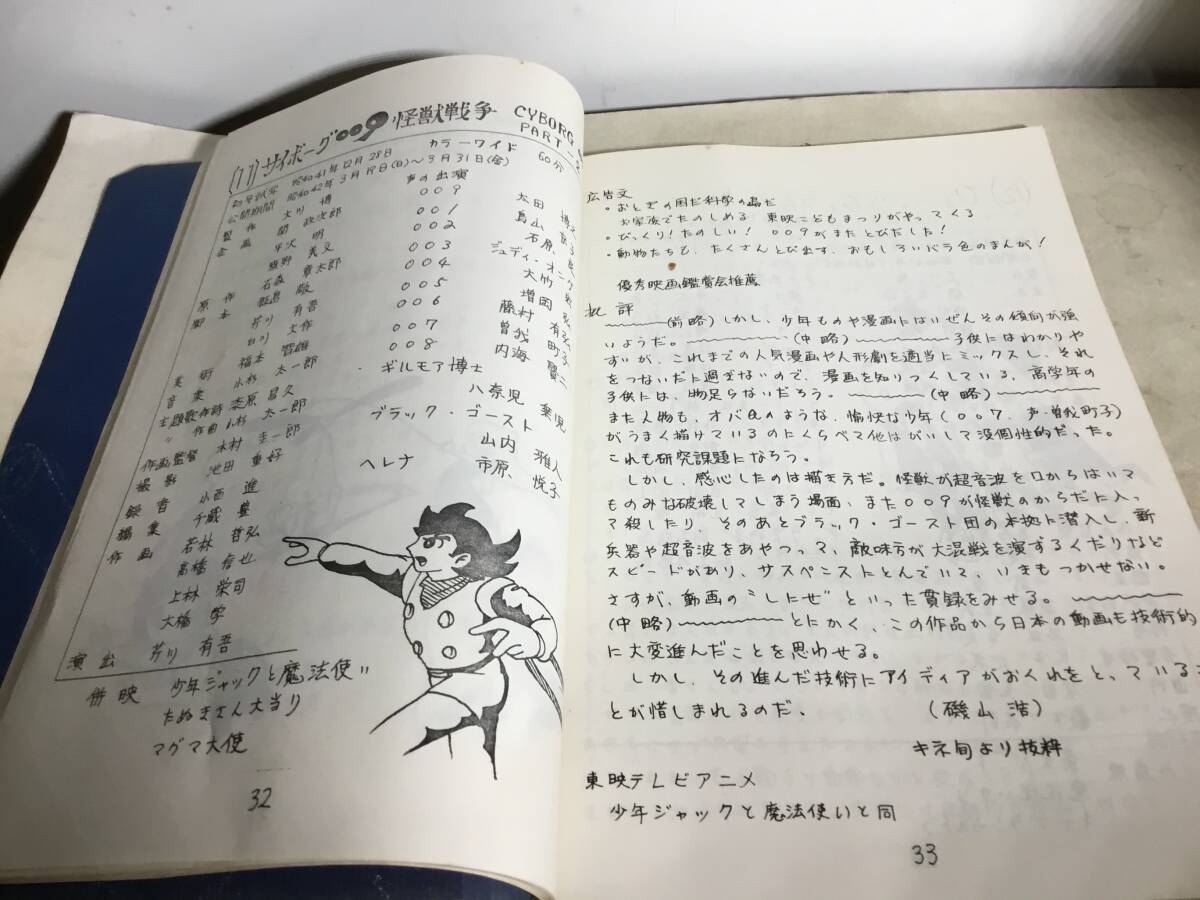 (11) サイボーグ009 怪獣戦争 CYBORG
PART
カラーワイド 60分
初号試写 昭和41年12月28日
公開期間 昭和42年3月19日(日)〜3月31日(金)
製作 大川 博
企画 関 政次郎
平沢 明
旗野 義文
原作 石森 章太郎
脚本 飯島 敬
芹川 有吾
白川 大作
美術 福本 智雄
音楽 小杉 太一郎
主題歌作詩 漆原 昌久
〃 作曲 小杉 太一郎
作画監督 木村 圭一郎
撮影 池田 重好
録音 小西 進
編集 千蔵 豊
作画 若林 哲弘
高橋 信也
上林 栄司
大橋 学
演出 芹川 有吾
声の出演
009 太田 博之
001 島山
002 石原 良
003 ジュディ・オング
004 大竹 宏
005 増岡 弘
006 藤村 有弘
007 曽我 町子
008 内海 賢二
ギルモア博士
八奈見 乗児
ブラック・ゴースト
山内 雅人
ヘレナ 市原 悦子
併映 少年ジャックと魔法使い
たぬきさん大当り
マグマ大使
32
広告文
・おとぎの国だ科学の島だ
お家族でたのしめる 東映こどもまつりがやってくる
・びっくり!たのしい! 009がまたとびだした!
・動物たちも、たくさんとび出す、おもしろいバラ色のまんが!
優秀映画鑑賞会推薦
批評
(前略)しかし、少年ものや漫画にはいぜんその傾向が強
いようだ。(中略)子供にはわかりや
すいが、これまでの人気漫画や人形劇を適当にミックスし、それ
をつないだに過ぎないので、漫画を知りつくしている、高学年の
子供には、物足らないだろう。(中略)
また人物も、オバQのような、愉快な少年(007、声・曽我町子)
がうまく描けているのにくらべて他はがいして没個性的だった。
これも研究課題になろう。
しかし、感心したのは描き方だ。怪獣が超音波を口からはいて
ものみな破壊してしまう場面、また009が怪獣のからだに入っ
て殺したり、そのあとブラック・ゴースト団の本拠に潜入し、新
兵器や超音波をあやつって、敵味方が大混戦を演ずるくだりなど
スピードがあり、サスペンスにとんでいて、いきもつかせない。
さすが、動画の〝しにせ〟といった貫録をみせる。
(中略)とにかく、この作品から日本の動画も技術的
に大変進んだことを思わせる。
しかし、その進んだ技術にアイディアがおくれをとっているこ
とが惜しまれるのだ。 (磯山 浩)
キネ旬より抜粋
東映テレビアニメ
少年ジャックと魔法使いと同
33